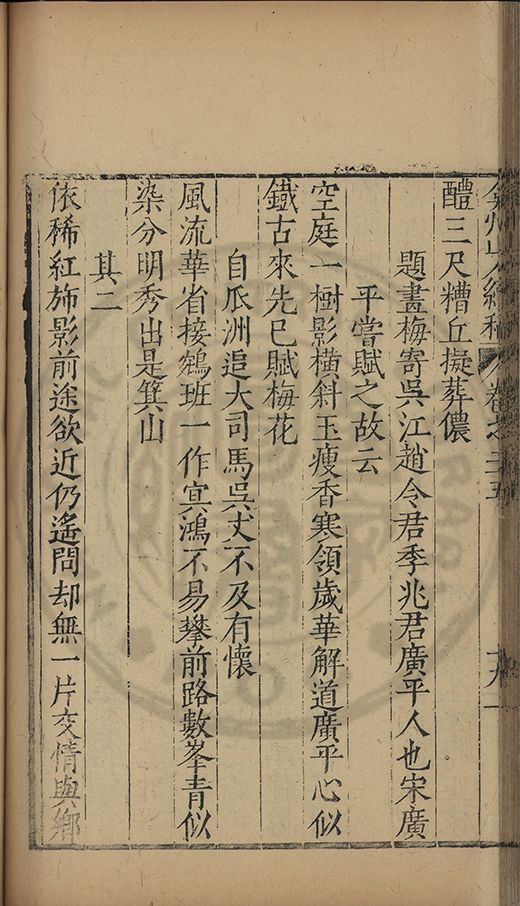 弇州山人續稿 卷之二十五
醴三尺糟丘擬葬儂
題畫梅寄吳江趙令君季兆君廣平人也宋廣
平嘗賦之故云
空庭一樹影橫斜玉瘦香寒領歲華解道廣平心似
鐵古來先已賦梅花
自瓜洲追大司馬吳丈不及有懷
風流華省接鵷班一作寘鴻不易攀前路數峯青似
染分明秀出是箕山
其二
依稀紅斾影前途欲近仍遙問却無一片交情與鄉